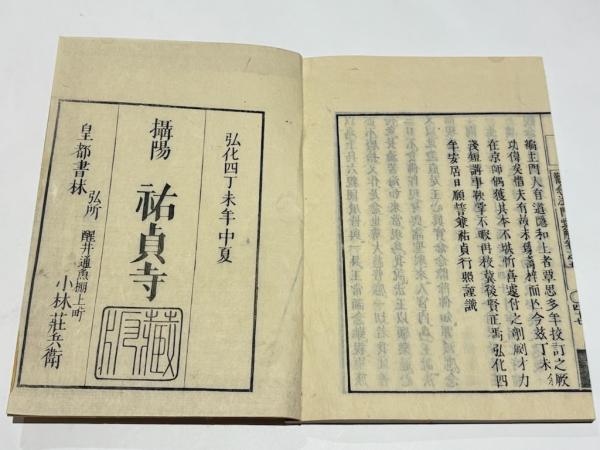 主門人有道隱和上者覃思多年校訂之厥
功偉矣惜夫有故未爲壽梓而止今茲丁未
在京師偶獲其本不堪忻喜遽付之剞劂才力
淺短講事鞅掌不暇再挍冀後賢正焉弘化四
年安居日願誓兼祐貞行照謹識
弘化四丁未年中夏
攝陽 祐貞寺
藏版
皇都書林 弘所 醒井通魚棚上町 小林莊兵衛